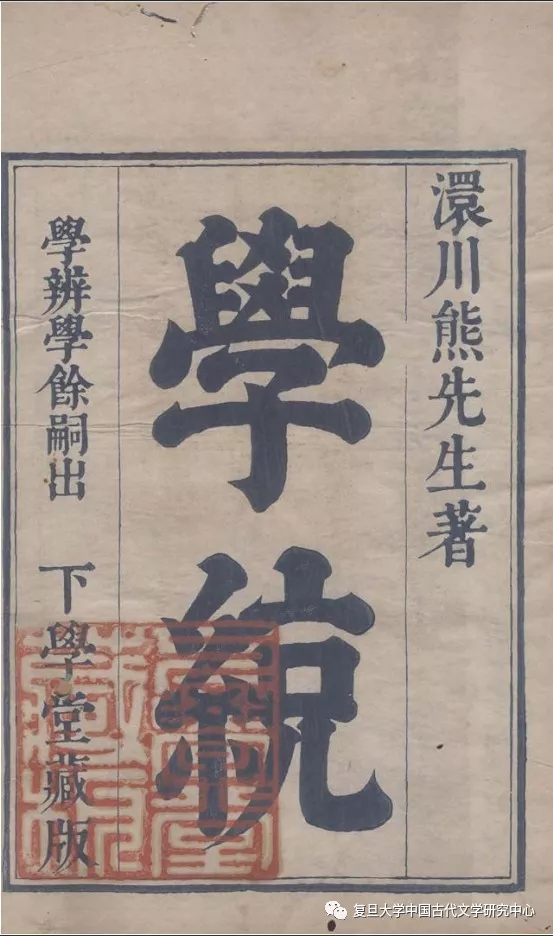 澴川熊先生著
學統
學辨學餘嗣出 下學堂藏版
复旦大学中国古代文学研究中心